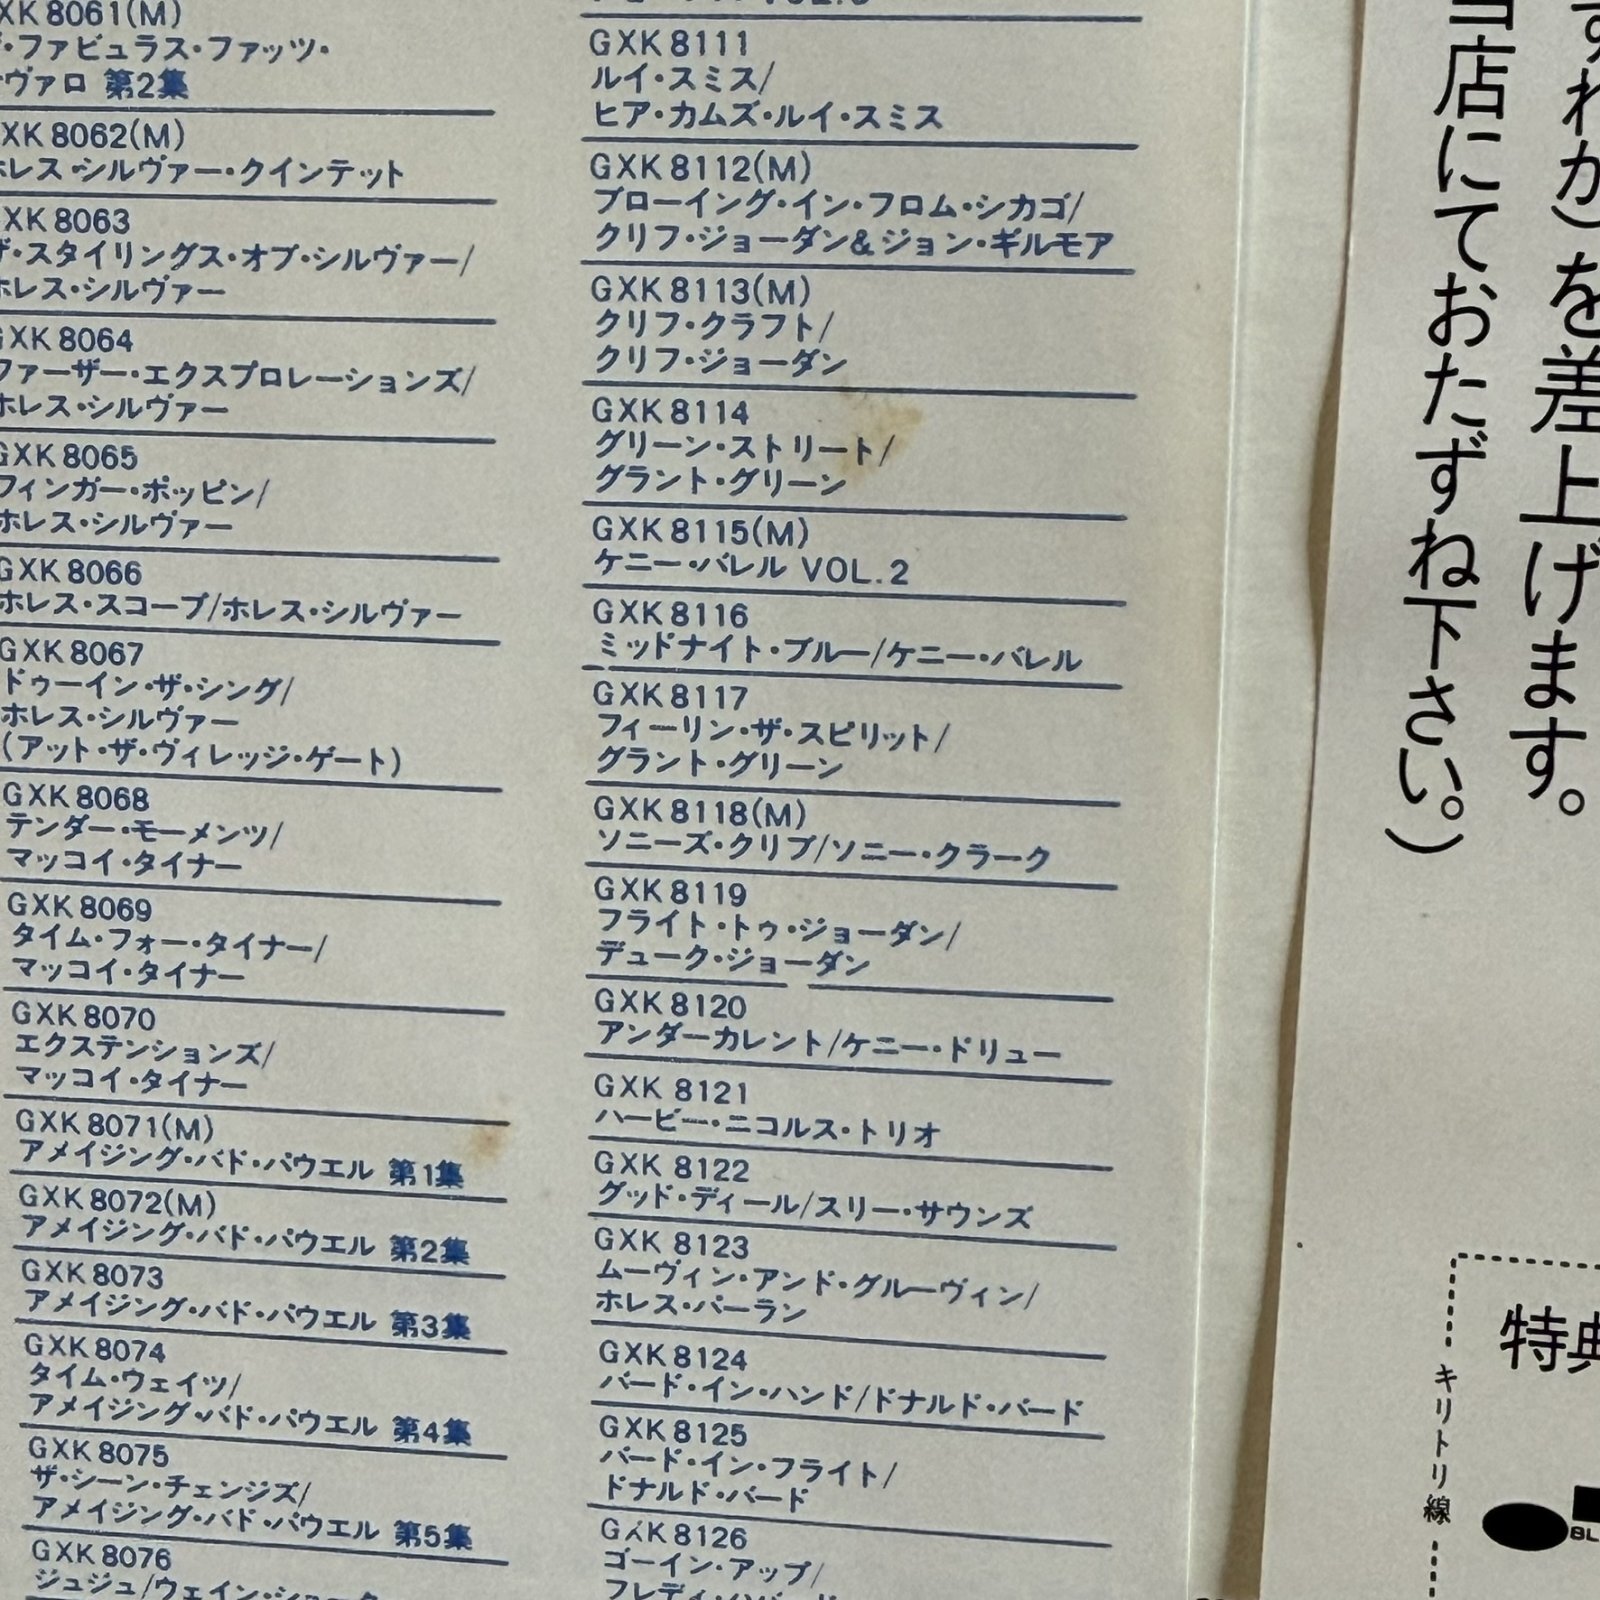 GXK 8061(M)
ファビュラス・ファッツ・
ヴァロ 第2集
GXK 8062(M)
ホレス・シルヴァー・クインテット
GXK 8063
ザ・スタイリングス・オブ・シルヴァー/
ホレス・シルヴァー
GXK 8064
ファーザー・エクスプロレーションズ/
ホレス・シルヴァー
GXK 8065
フィンガー・ポッピン/
ホレス・シルヴァー
GXK 8066
ホレス・スコープ/ホレス・シルヴァー
GXK 8067
ドゥーイン・ザ・シング/
ホレス・シルヴァー
(アット・ザ・ヴィレッジ・ゲート)
GXK 8068
テンダー・モーメンツ/
マッコイ・タイナー
GXK 8069
タイム・フォー・タイナー/
マッコイ・タイナー
GXK 8070
エクステンションズ/
マッコイ・タイナー
GXK 8071(M)
アメイジング・バド・パウエル 第1集
GXK 8072(M)
アメイジング・バド・パウエル 第2集
GXK 8073
アメイジング・バド・パウエル 第3集
GXK 8074
タイム・ウェイツ/
アメイジング・バド・パウエル 第4集
GXK 8075
ザ・シーン・チェンジズ/
アメイジング・バド・パウエル 第5集
GXK 8076
ジュジュ/ウェイン・ショーター
GXK 8111
ルイ・スミス/
ヒア・カムズ・ルイ・スミス
GXK 8112(M)
ブローイング・イン・フロム・シカゴ/
クリフ・ジョーダン&ジョン・ギルモア
GXK 8113(M)
クリフ・クラフト/
クリフ・ジョーダン
GXK 8114
グリーン・ストリート/
グラント・グリーン
GXK 8115(M)
ケニー・バレル VOL.2
GXK 8116
ミッドナイト・ブルー/ケニー・バレル
GXK 8117
フィーリン・ザ・スピリット/
グラント・グリーン
GXK 8118(M)
ソニーズ・クリブ/ソニー・クラーク
GXK 8119
フライト・トゥ・ジョーダン/
デューク・ジョーダン
GXK 8120
アンダーカレント/ケニー・ドリュー
GXK 8121
ハービー・ニコルス・トリオ
GXK 8122
グッド・ディール/スリー・サウンズ
GXK 8123
ムーヴィン・アンド・グルーヴィン/
ホレス・パーラン
GXK 8124
バード・イン・ハンド/ドナルド・バード
GXK 8125
バード・イン・フライト/
ドナルド・バード
GXK 8126
ゴーイン・アップ/
フレディ・ハバード
ずれか)を差上げます。
当店にておたずね下さい。)
特典
キリトリ線
BL